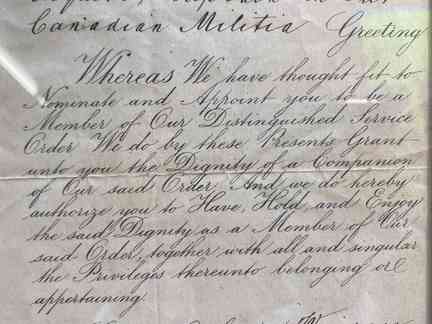 Esquire, Captain in Our
Canadian Militia Greeting
Whereas We have thought fit to
Nominate and Appoint you to be a
Member of Our Distinguished Service
Order We do by these Presents Grant
unto you the Dignity of a Companion
of Our said Order And we do hereby
authorize you to Have, Hold, and Enjoy
the said Dignity as a Member of Our
said Order, together with all and singular
the Privileges thereunto belonging or
appertaining.